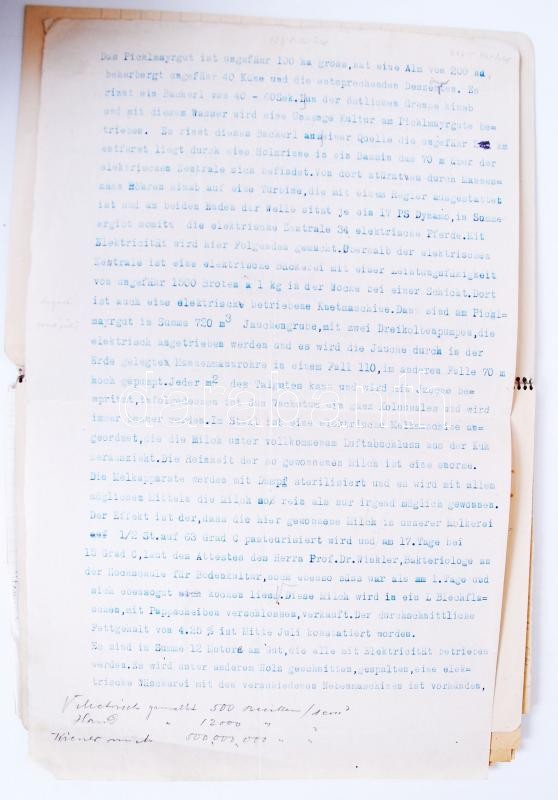 Das Picklmayrgut ist ungefähr 100 ha gross, hat eine Alm von 200 ha,
beherbergt ungefähr 40 Kühe und die entsprechenden Es
rinnt ein Backerl von 40 - 60Sek. an der östlichen Grenze hinab
und mit diesem Wasser wird eine Kultur am Picklmayrgute be-
trieben. Es rinnt dieses Backerl aus einer Quelle die ungefähr km
entfernt liegt durch eine Holzrinne in ein Bassin das 70 m über der
elektrischen Zentrale sich befindet. Von dort stürzt es durch Mannes-
mann Röhren hinab auf eine Turbine, die mit einem Regler ausgestattet
ist und an beiden Enden der Welle sitzt je ein 17 PS Dynamo, in Summe
ergibt somit die elektrische Zentrale 34 elektrische Pferde. Mit
Elektricität wird hier Folgendes gemacht. Überhalb der elektrischen
Zentrale ist eine elektrische Bäckerei mit einer Leistungsfähigkeit
von ungefähr 1500 Broten a 1 kg in der Woche bei einer Schicht. Dort
ist auch eine elektrische betriebene Knetmaschine. Dann sind am Pickl-
mayrgut in Summe 720 m3 Jauchengrube, mit zwei Dreikolbenpumpen, die
elektrisch angetrieben werden und es wird die Jauche durch in der
Erde gelegten Mannesmannrohre in einem Fall 110, im anderen Falle 70 m
hoch gepumpt. Jeder m2 des Talgutes kann und wird mit Jauche be-
spritzt, infolgedessen ist das Wachstum ein ganz Kolossales und wird
immer besser werden. In Stall ist eine elektrische Melkmaschine an-
geordnet, die die Milch unter vollkommenem Luftabschluss aus der Kuh
herauszieht. Die Reinheit der so gewonnenen Milch ist eine enorme.
Die Melkapparate werden mit Dampf sterilisiert und es wird mit allen
möglichen Mitteln die Milch so rein als nur irgend möglich gewonnen.
Der Effekt ist der, dass die hier gewonnene Milch in unserer Molkerei
1/2 St. auf 63 Grad C pasteurisiert wird und am 17. Tage bei
15 Grad C, laut des Attestes des Herrn Prof. Dr. Winkler, Bakteriologe an
der Hochschule für Bodenkultur, noch ebenso süss war als am 1. Tage und
sich ebensogut kochen liess. Diese Milch wird in ein L Blechfla-
schen, mit Pappscheiben verschlossen, verkauft. Der durchschnittliche
Fettgehalt von 4.25 % ist Mitte Juli konstatiert worden.
Es sind in Summe 12 Motore am Gut, die alle mit Elektricität betrieben
werden. Es wird unter anderem Holz geschnitten, gespalten, eine elek-
trische Wäscherei mit den verschiedenen Nebenmaschinen ist vorhanden,
Elektrisch gemolkt 500 /
Hand " 12000 "
Wiener milch 500,000,000 " "